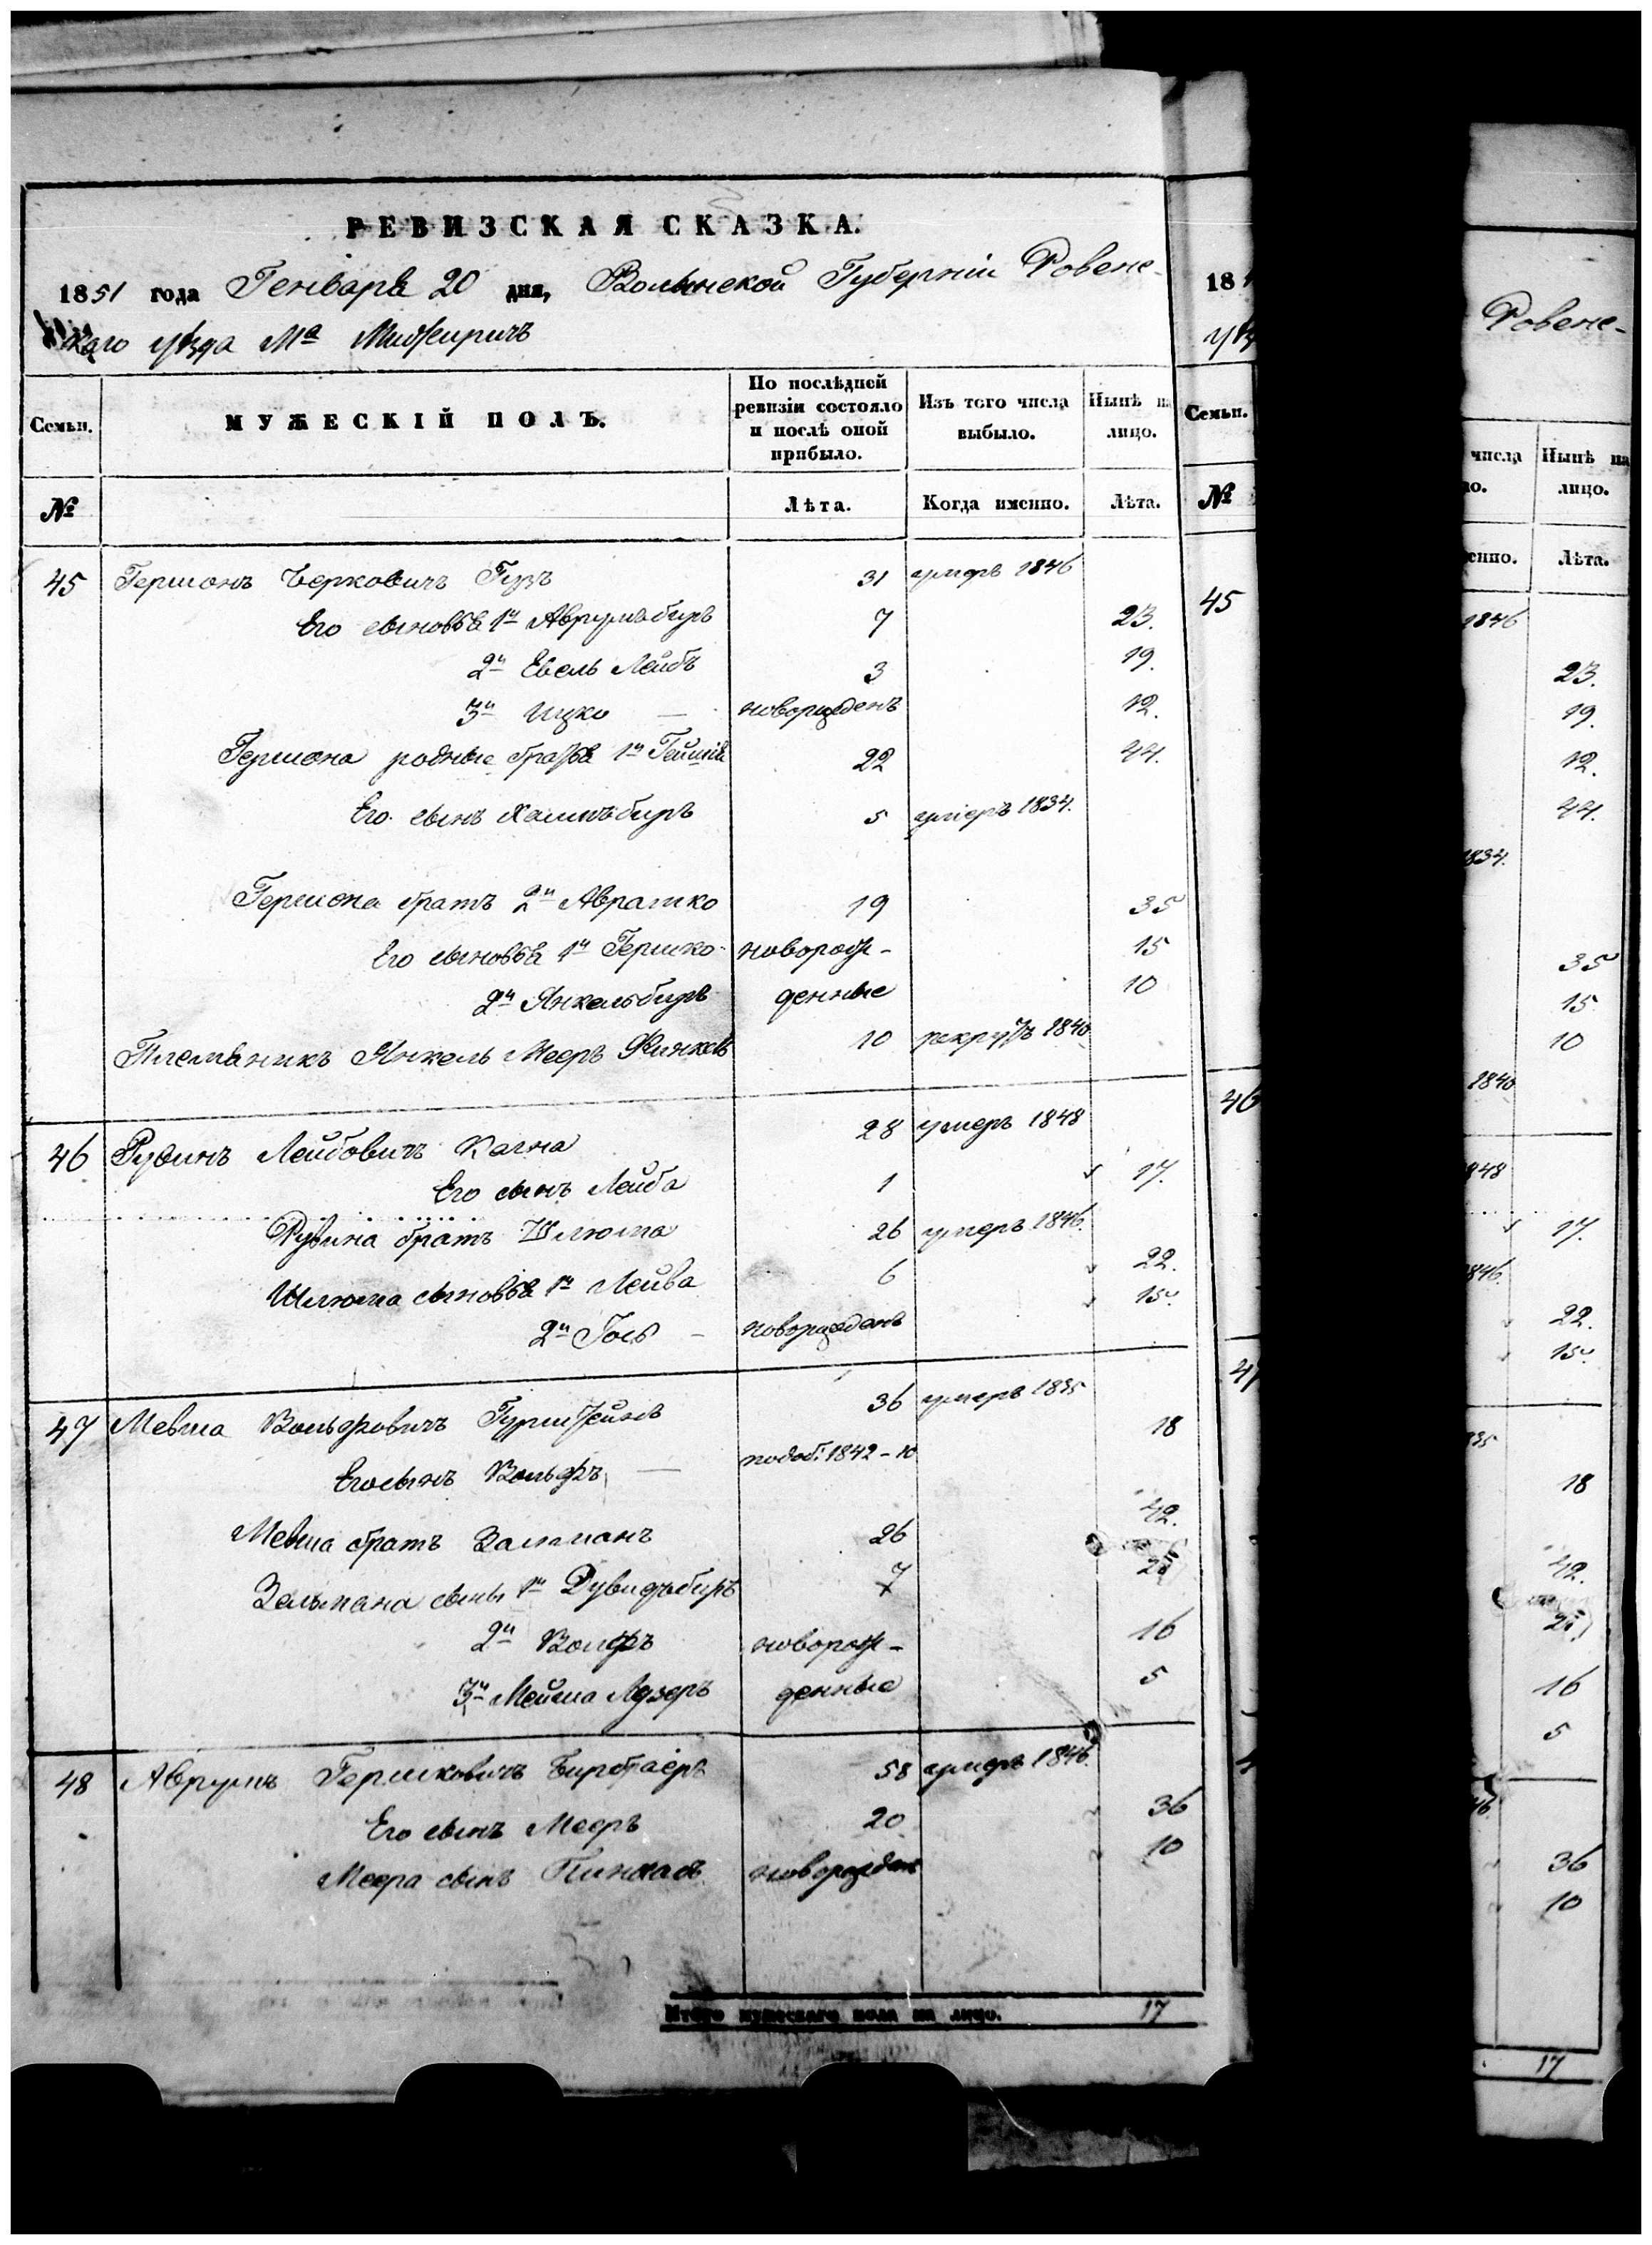 РЕВИЗСКАЯ СКАЗКА.
1851 года Генваря 20 дня, Волынской Губерніи Ровенс-
каго уѣзда Мᵃ Межиричъ
Семьи.
МУЖЕСКІЙ ПОЛЪ.
По послѣдней ревизіи состояло и послѣ оной прибыло.
Изъ того числа выбыло.
Нынѣ на лицо.
№ Лѣта. Когда именно. Лѣта.
45 Гершонъ Берковичъ Гузъ 31 умеръ 1846
Его сыновья 1й Аврумъ биръ 7 23.
2й Евель Лейбъ 3 19.
3й Ицко — новорожденъ 12.
Гершона родные братья 1й 22 44.
Его сынъ Хаимъ биръ 5 умеръ 1834.
Гершона братъ 2й Аврашко 19 35
Его сыновья 1й Гершко новорож- 15
2й Янкель биръ денные 10
Племяникъ Янкель Мееръ 10 рекрутъ 1840
46 Рувинъ Лейбовичъ Кагна 28 умеръ 1848
Его сынъ Лейба 1 17.
Рувина братъ Шлюма 26 умеръ 1846.
Шлюма сыновья 1й Лейба 6 22.
2й Гось — новорожденъ 15.
47 Мевша Вольфовичъ Гурштейнъ 36 умеръ 1835
Его сынъ Вольфъ — 1842 - 10 18
Мевша братъ Залманъ 26 42.
Зельмана сыны 1й Дувидъ биръ 7
2й Волфъ новорож- 16
3й Мейша Лузеръ денные 5
48 Аврумъ Гершковичъ 58 умеръ 1846.
Его сынъ Мееръ 20 36
Меера сынъ Пинхасъ новорожденъ 10
Итого мужескаго пола на лицо. 17
18
уѣз
Семьи.
№
45
46
47
4
Ровенс-
числа
Нынѣ на лицо.
Лѣта.
1846
23.
19.
12.
44.
1834.
35
15
10
1840
1848
17.
1846.
22.
15.
18
42.
16
5
36
10
17